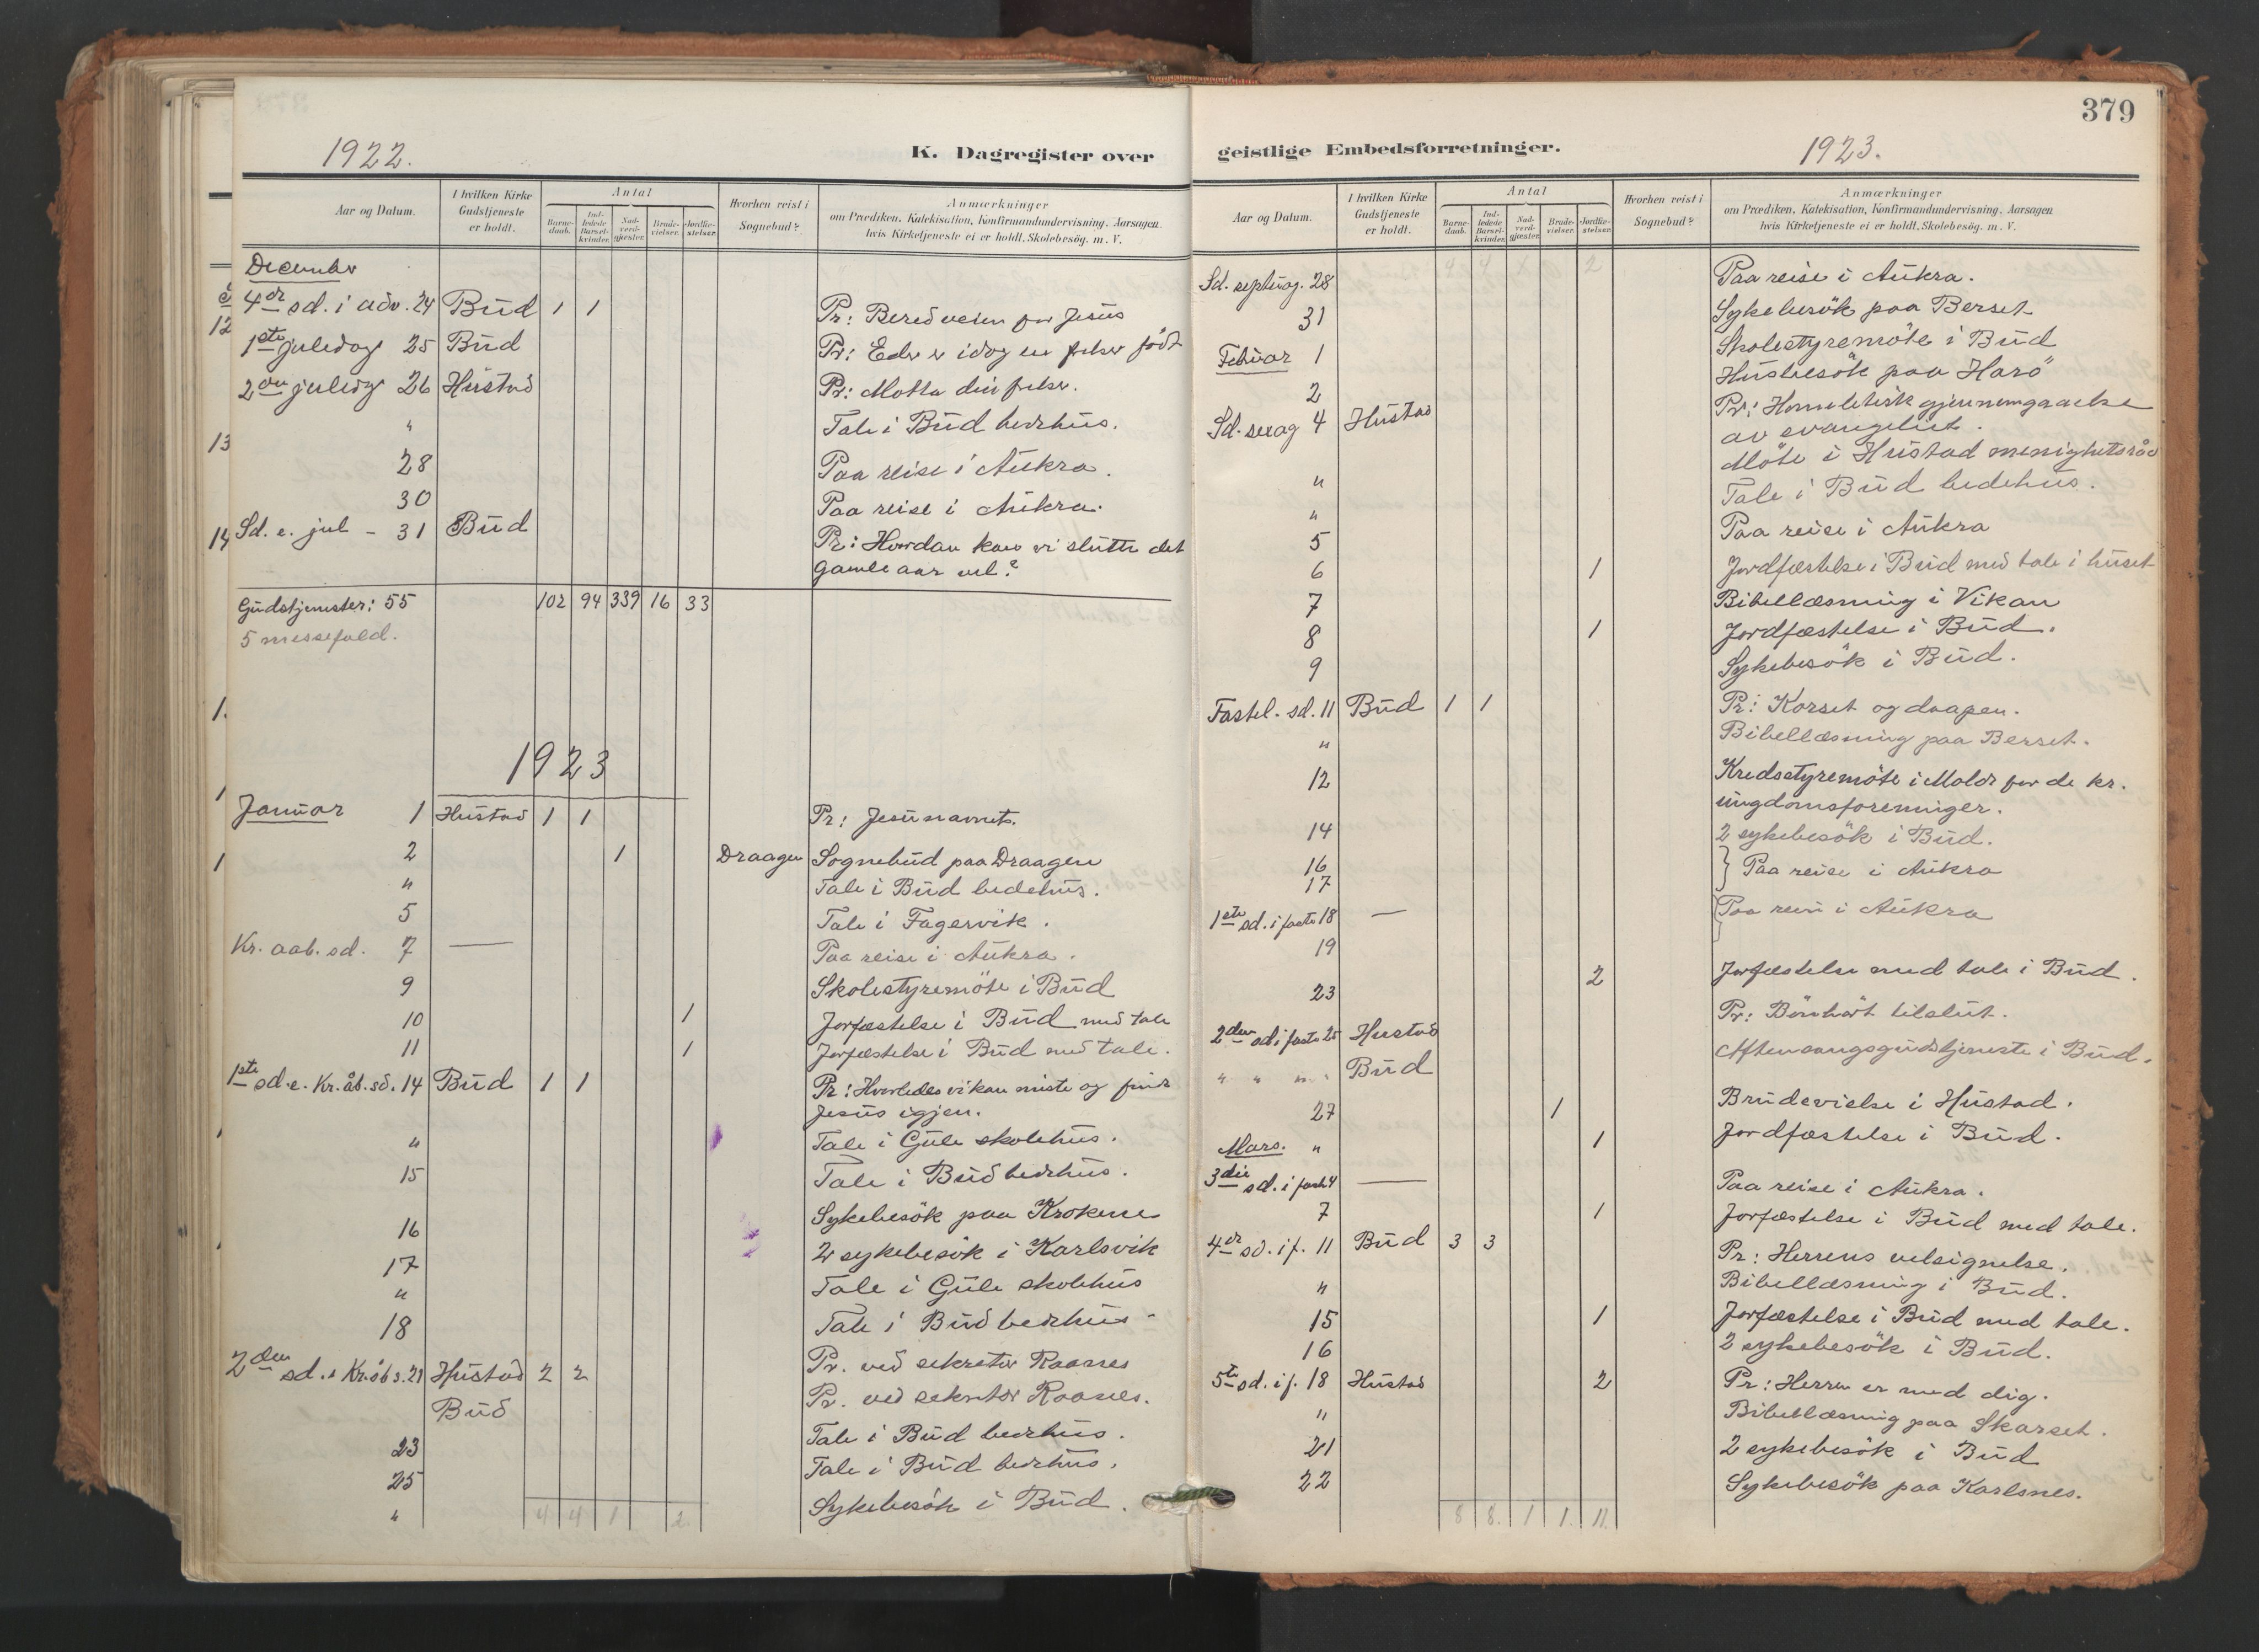 1922.
K. Dagregister over
Aar og Datum.
I hvilken Kirke Gudstjeneste er holdt.
Antal
Barnedaab.
Indledede Barselkvinder.
Nadverdgjæster.
Brudevielser.
Jordfæstelser.
Hvorhen reist i Sognebud?
Anmærkninger
om Prædiken, Katekisation, Konfirmandundervisning. Aarsagen
hvis Kirketjeneste ei er holdt, Skolebesøg. m. V.
December
4de sd. i adv. 24 Bud 1 1 Pr: Bered veien for Jesus
1ste juledag 25 Bud Pr: Eder er idag en frelser født
2den juledag 26 Hustad Pr: Motta din frelser.
" Tale i Bud bedehus.
28 Paa reise i Aukra.
30 Paa reise i Aukra.
Sd. e. jul - 31 Bud Pr: Hvordan kan vi slutte det
gamle aar vel?
Gudstjenester: 55 102 94 339 16 33
5 messefald.
1923
Januar 1 Hustad 1 1 Pr: Jesu navnet.
2 1 Draagen Sognebud paa Draagen
" Tale i Bud bedehus.
5 Tale i Fagervik.
Kr. aab. sd. 7 — Paa reise i Aukra.
9 Skolestyremöte i Bud
10 1 Jorfæstelse i Bud med tale
11 1 Jorfæstelse i Bud med tale.
1ste sd. e. Kr. åb. sd. 14 Bud 1 1 Pr: Hvorledes vi kan miste og finde
Jesus igjen.
" Tale i Gule skolehus.
15 Tale i Bud bedehus.
16 Sykebesök paa Krokene
17 2 sykebesök i Karlsvik
" Tale i Gule skolehus
18 Tale i Bud bedehus
2den sd. e Kr. åb s. 21 Hustad 2 2 Pr. ved sekretær Raanes
Bud Pr. ved sekretær Raanes.
23 Tale i Bud bedehus.
25 Tale i Bud bedehus.
" Sykebesök i Bud.
4 4 1 2
379
geistlige Embedsforretninger.
1923.
Aar og Datum.
I hvilken Kirke Gudstjeneste er holdt.
Antal
Barnedaab.
Indledede Barselkvinder.
Nadverdgjæster.
Brudevielser.
Jordfæstelser.
Hvorhen reist i Sognebud?
Anmærkninger
om Prædiken, Katekisation, Konfirmandundervisning. Aarsagen
hvis Kirketjeneste ei er holdt, Skolebesøg. m. V.
Sd. septuag. 28 Paa reise i Aukra.
31 Sykebesök paa Berset
Februar 1 Skolestyremöte i Bud
2 Husbesök paa Harö
Sd. sexag 4 Hustad Pr: Homiletisk gjennemgaaelse
av evangeliet.
" Möte i Hustad menighetsråd
" Tale i Bud bedehus.
5 Paa reise i Aukra
6 1 Jordfæstelse i Bud med tale i huset
7 Bibellæsning i Vikan
8 1 Jordfæstelse i Bud.
9 Sykebesök i Bud.
Fastel. sd. 11 Bud 1 1 Pr: Korset og daapen.
" Bibellæsning paa Berset.
12 Kredsstyremöte i Molde for de kr.
ungdomsforeninger.
14 2 sykebesök i Bud.
16
17 } Paa reise i Aukra
1ste sd. i faste 18 — Paa reise i Aukra
19
23 2 Jorfæstelse med tale i Bud.
2den sd i faste 25 Hustad Pr: Bönhört tilslut.
" " " " Bud Aftensangsgudstjeneste i Bud.
27 1 Brudevielse i Hustad.
Mars. " 1 Jordfæstelse i Bud.
3die sd. i faste 4 — Paa reise i Aukra.
7 1 Jorfæstelse i Bud med tale.
4de sd. i f. 11 Bud 3 3 Pr: Herrens velsignelse.
" Bibellæsning i Bud.
15 1 Jorfæstelse i Bud med tale.
16 2 sykebesök i Bud.
5te sd. i f. 18 Hustad 2 Pr: Herren er med dig.
" Bibellæsning paa Skarset.
21 2 sykebesök i Bud
22 Sykebesök paa Karlsnes.
8 8. 1 1. 11.